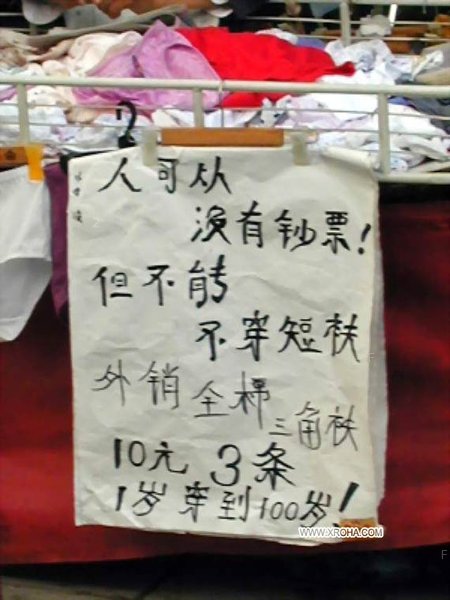 人可从
没有钞票!
但不能
不穿短衭
外销全棉
三角衭
10元3条
1岁穿到100岁!
WWW.XROHA.COM
F